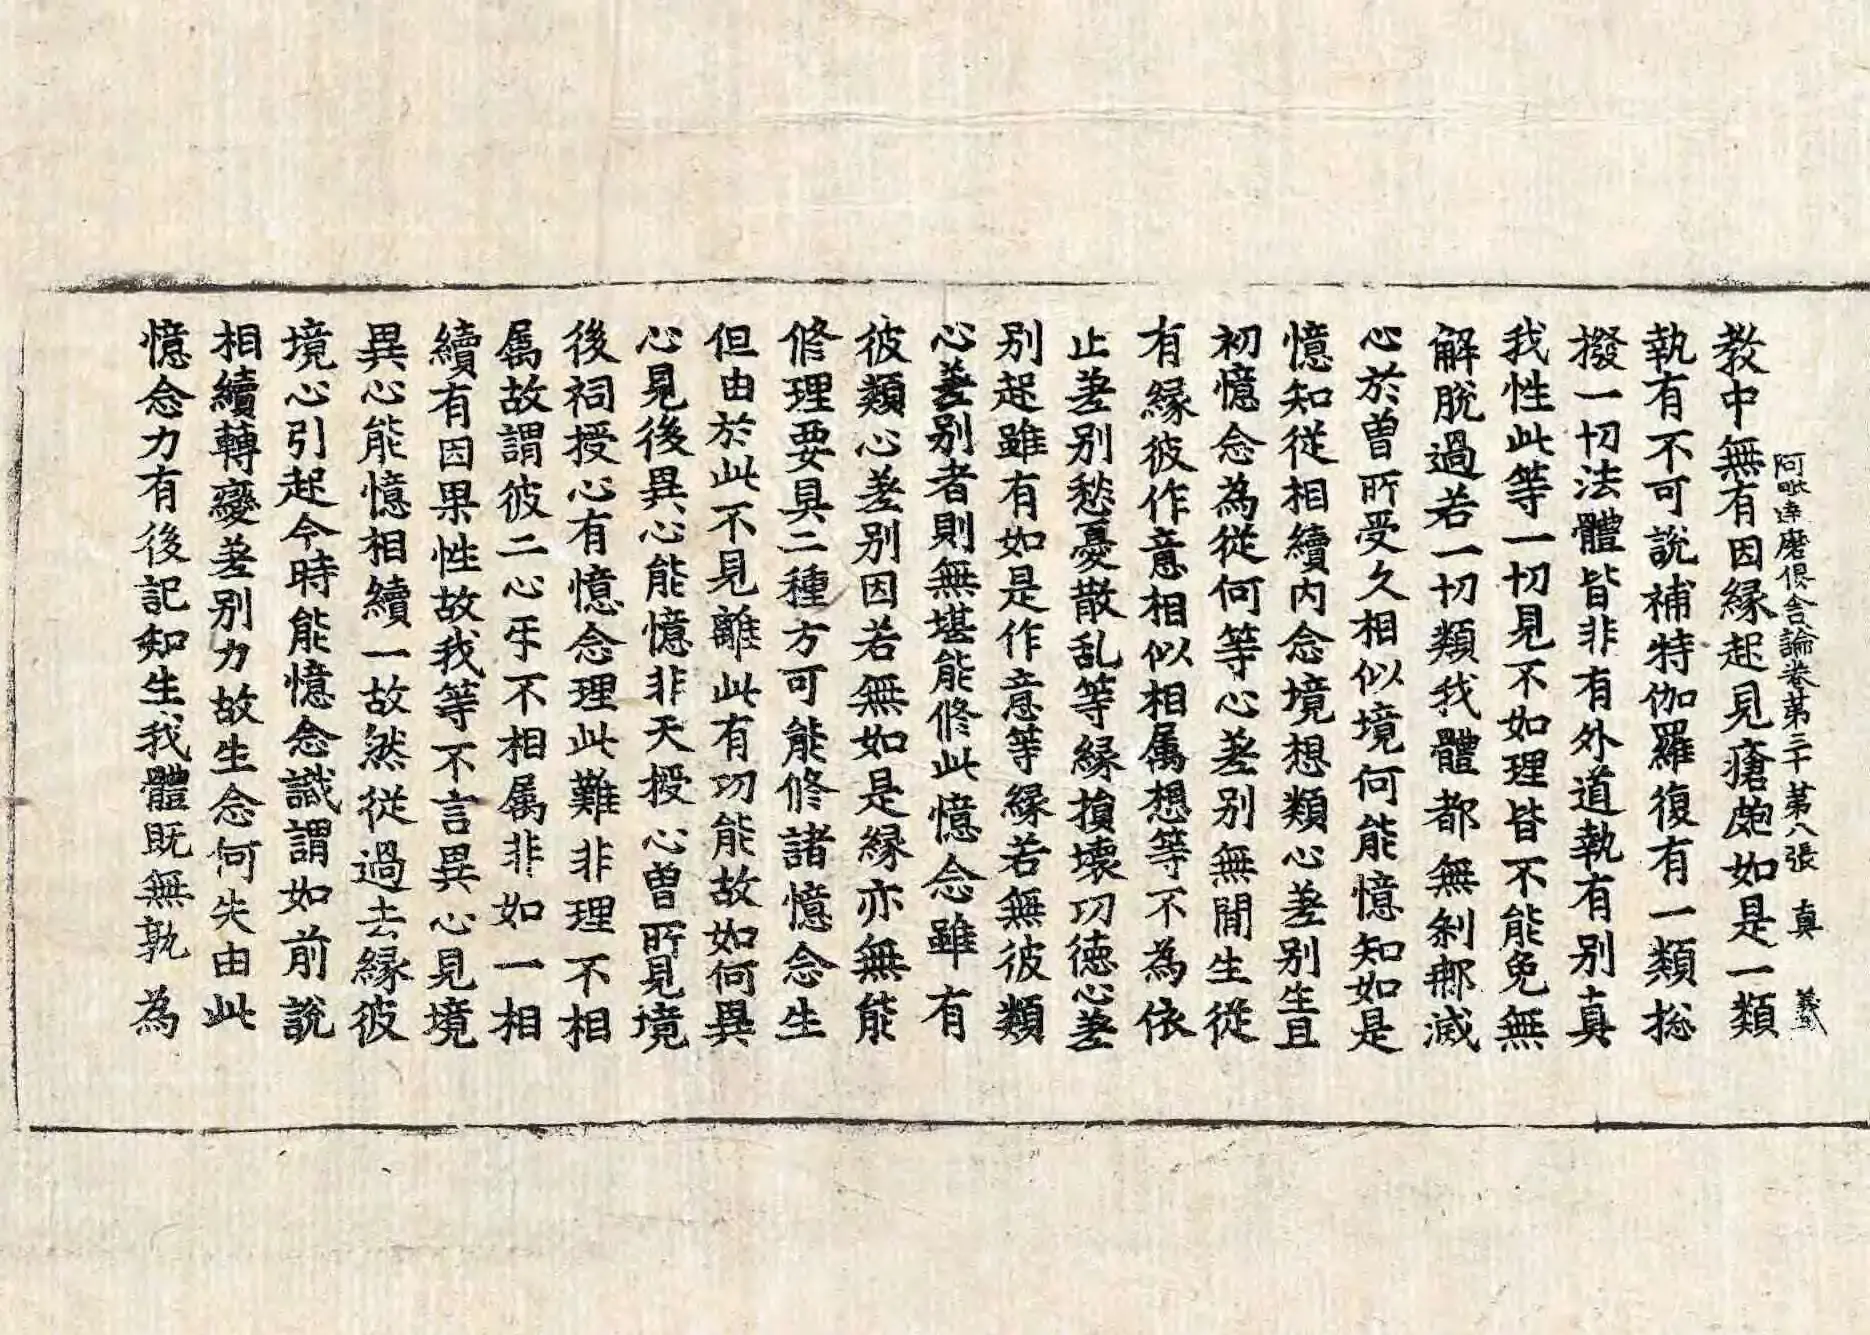 阿毗達磨俱舍論卷第三十 第八張 真
教中無有因縁起見瘡皰如是一類
執有不可說補特伽羅復有一類捴
撥一切法體皆非有外道執有别真
我性此等一切見不如理皆不能免無
解脫過若一切類我體都無剎那滅
心於曽所受久相似境何能憶知如是
憶知從相續内念境想類心差别生且
初憶念為從何等心差别無間生從
有縁彼作意相似相属想等不為依
止差别愁憂散乱等縁損壞功徳心差
别起雖有如是作意等縁若無彼類
心差别者則無堪能修此憶念雖有
彼類心差别因若無如是縁亦無能
修理要具二種方可能修諸憶念生
但由於此不見離此有功能故如何異
心見後異心能憶非天授心曽所見境
後祠授心有憶念理此難非理不相
属故謂彼二心互不相属非如一相
續有因果性故我等不言異心見境
異心能憶相續一故然從過去縁彼
境心引起今時能憶念識謂如前說
相續轉變差别力故生念何失由此
憶念力有後記知生我體既無孰為